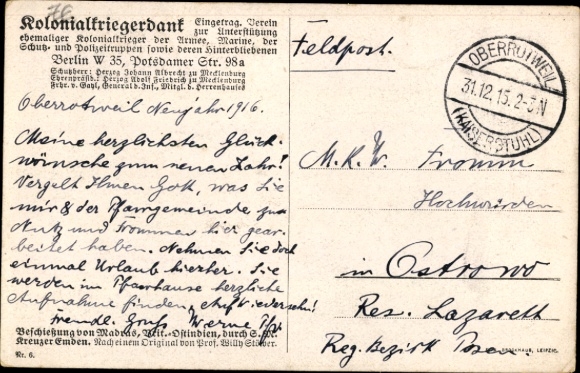 76
Kolonialkriegerdank Eingetrag. Verein
zur Unterstützung
ehemaliger Kolonialkrieger der Armee, Marine, der
Schutz- und Polizeitruppen sowie deren Hinterbliebenen
Berlin W 35, Potsdamer Str. 98a
Schutzherr: Herzog Johann Albrecht zu Mecklenburg
Ehrenpräsid.: Herzog Adolf Friedrich zu Mecklenburg
Frhr. v. Gayl, General d. Inf., Mitgl. d. Herrenhauses
Oberrotweil Neujahr 1916.
Meine herzlichsten Glück-
wünsche zum neuen Jahr!
Vergelt Ihnen Gott, was Sie
mir & der Pfarrgemeinde zu
Nutz und Frommen hier gear-
beitet haben. Nehmen Sie doch
einmal Urlaub hierher. Sie
werden im Pfarrhause herzliche
Aufnahme finden. Auf Wiedersehn!
Freundl. Gruß
Beschießung von Madras, Brit.-Ostindien, durch S. M.
Kreuzer Emden. Nach einem Original von Prof. Willy Stöwer.
Nr. 6.
Feldpost.
OBERROTWEIL
31.12.15. 2-3 N
(KAISERSTUHL)
M. K. W. Fromm
Hochwürden
in Ostrowo
Res. Lazareth
Reg. Bezirk Posen
LEIPZIG.